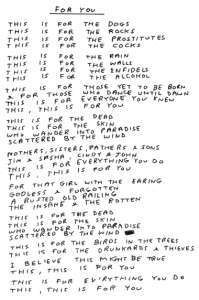 FOR YOU
THIS IS FOR THE DOGS
THIS IS FOR THE ROCKS
THIS IS FOR THE PROSTITUTES
THIS IS FOR THE COCKS
THIS IS FOR THE RAIN
THIS IS FOR THE WALLS
THIS IS FOR THE INFIDELS
THIS IS FOR THE ALCOHOL
THIS IS FOR THOSE YET TO BE BORN
& FOR THOSE WHO DANCE UNTIL DAWN
THIS IS FOR EVERYONE YOU KNEW
THIS, THIS IS FOR YOU
THIS IS FOR THE DEAD
THIS IS FOR THE SKIN
WHO WANDER INTO PARADISE
SCATTERED BY THE WIND
MOTHERS, SISTERS, FATHERS & SONS
JIM & SASHA, CINDY & JOHN
THIS IS FOR EVERYTHING YOU DO
THIS, THIS IS FOR YOU
FOR THAT GIRL WITH THE EARING
GODLESS & FORGOTTEN
A RUSTED OLD RAILING
THE INSANE & THE ROTTEN
THIS IS FOR THE DEAD
THIS IS FOR THE SKIN
WHO WANDER INTO PARADISE
SCATTERED BY THE WIND
THIS IS FOR THE BIRDS IN THE TREES
THIS IS FOR THE DRUNKARDS & THIEVES
I BELIEVE THIS MIGHT BE TRUE
THIS, THIS IS FOR YOU
THIS IS FOR EVERYTHING YOU DO
THIS, THIS IS FOR YOU